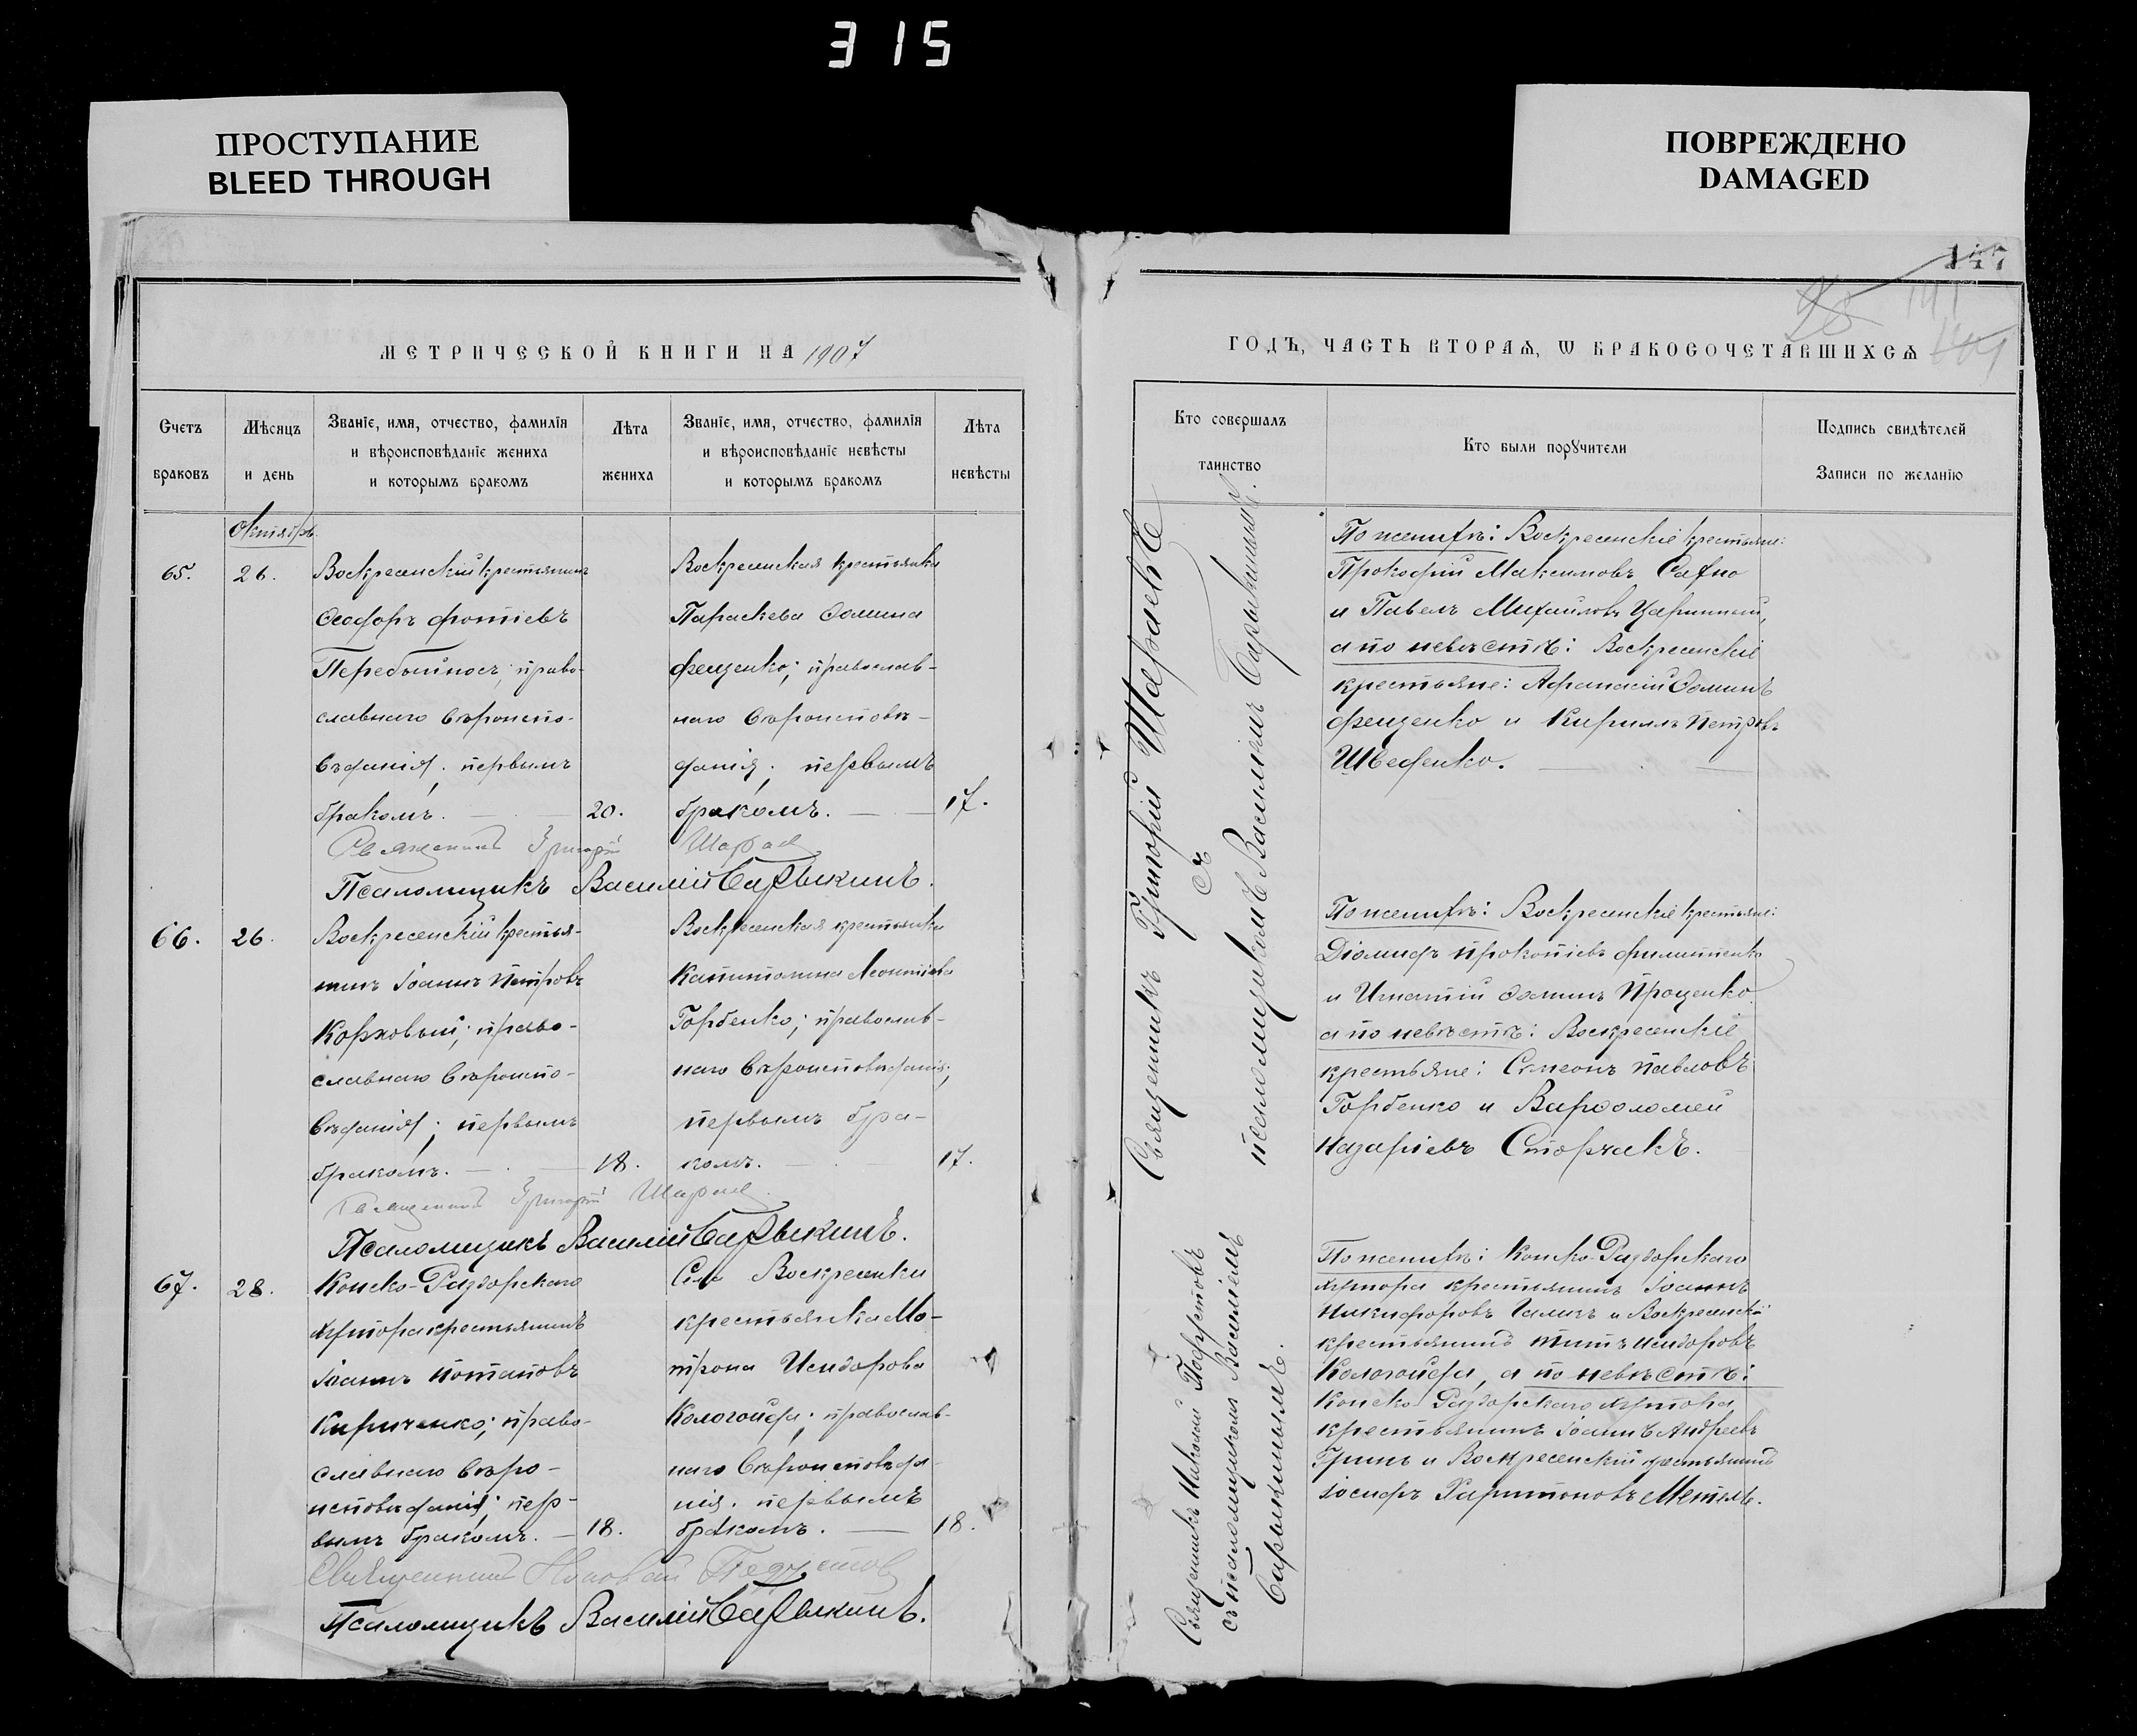 315
ПРОСТУПАНИЕ
BLEED THROUGH
ПОВРЕЖДЕНО
DAMAGED
147
МЕТРИЧЕСКОЙ КНИГИ НА 1907
Счетъ
браковъ
Мѣсяцъ
и день
Званіе, имя, отчество, фамилія
и вѣроисповѣданіе жениха
и которымъ бракомъ
Лѣта
жениха
Званіе, имя, отчество, фамилія
и вѣроисповѣданіе невѣсты
и которымъ бракомъ
Лѣта
невѣсты
Октябрь
65.
26.
Воскресенскій крестьянинъ
Ѳеодоръ Фотіевъ
Перебыйносъ; право-
славнаго вѣроиспо-
вѣданія; первымъ
бракомъ.
20.
Воскресенская крестьянка
Параскева Ѳомина
Фещенко; православ-
наго вѣроисповѣ-
данія; первымъ
бракомъ.
17.
Священникъ Григорій
Псаломщикъ Василій Сарыкинъ.
66.
26.
Воскресенскій крестья-
нинъ Іоаннъ Петровъ
Коржовый; право-
славнаго вѣроиспо-
вѣданія; первымъ
бракомъ.
18.
Воскресенская крестьянка
Капитолина Леонтіева
Горбенко; православ-
наго вѣроисповѣданія;
первымъ бра-
комъ.
17.
Священникъ Григорій
Псаломщикъ Василій Сарыкинъ.
67.
28.
Конско-Раздорскаго
хутора крестьянинъ
Іоаннъ Потаповъ
Кириченко; право-
славнаго вѣро-
исповѣданія; пер-
вымъ бракомъ.
18.
Села Воскресенки
крестьянка Ма-
трона Исидорова
Кологойда; православ-
наго вѣроисповѣда-
нія. первымъ
бракомъ.
18.
Священникъ Николай
Псаломщикъ Василій Сарыкинъ.
ГОДЪ, ЧАСТЬ ВТОРАѦ, Ѡ БРАКОСОЧЕТАВШИХСѦ
Кто совершалъ
таинство
Кто были порꙋчители
Подпись свидѣтелей
Записи по желанію
Священникъ Григорій
съ
псаломщикомъ Василіемъ Сарыкинымъ.
Священникъ Николай
съ псаломщикомъ Василіемъ
Сарыкинымъ.
По женихѣ: Воскресенскіе крестьяне:
Прокофій Максимовъ Сахно
и Павелъ Михайловъ Царинный,
а по невѣстѣ: Воскресенскіе
крестьяне: Афанасій Ѳоминъ
Фещенко и Кириллъ Петровъ
Шведенко.
По женихѣ: Воскресенскіе крестьяне:
Діомидъ Прокопіевъ Филиппенко
и Игнатій Ѳоминъ Проценко
а по невѣстѣ: Воскресенскіе
крестьяне: Симеонъ Павловъ
Горбенко и Варѳоломей
Назаріевъ Сторчакъ.
По женихѣ: Конско-Раздорскаго
хутора крестьянинъ Іоаннъ
Никифоровъ Галичъ и Воскресенскій
крестьянинъ Титъ Исидоровъ
Кологойда, а по невѣстѣ:
Конско-Раздорскаго хутора
крестьянинъ Іоаннъ Андреевъ
Гринь и Воскресенскій крестьянинъ
Іосифъ Харитоновъ Метель.